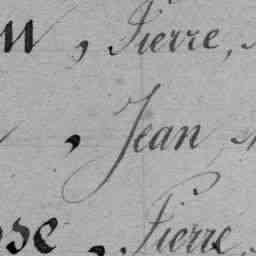 , Pierre,
, Jean
, Pierre